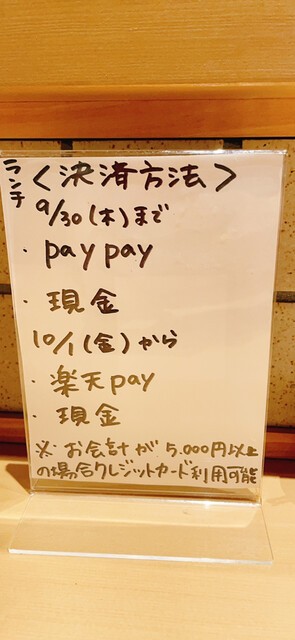 ランチ
<決済方法>
9/30(木)まで
・paypay
・現金
10/1(金)から
・楽天pay
・現金
※お会計が5.000円以上
の場合クレジットカード利用可能